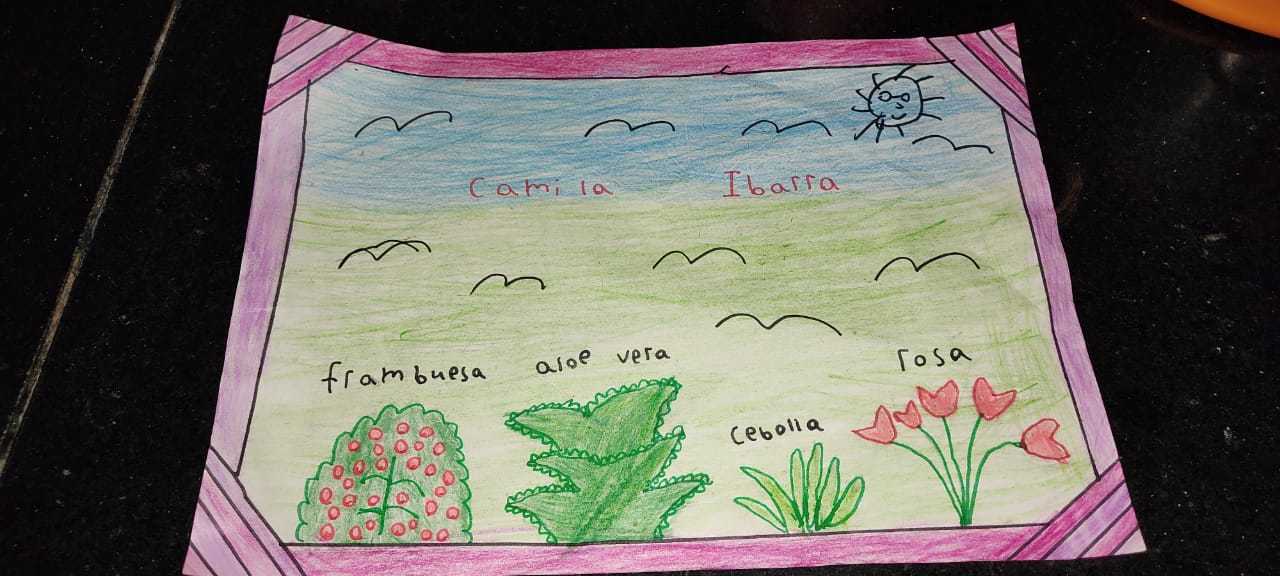 Camila Ibarra
frambuesa
aloe vera
cebolla
rosa